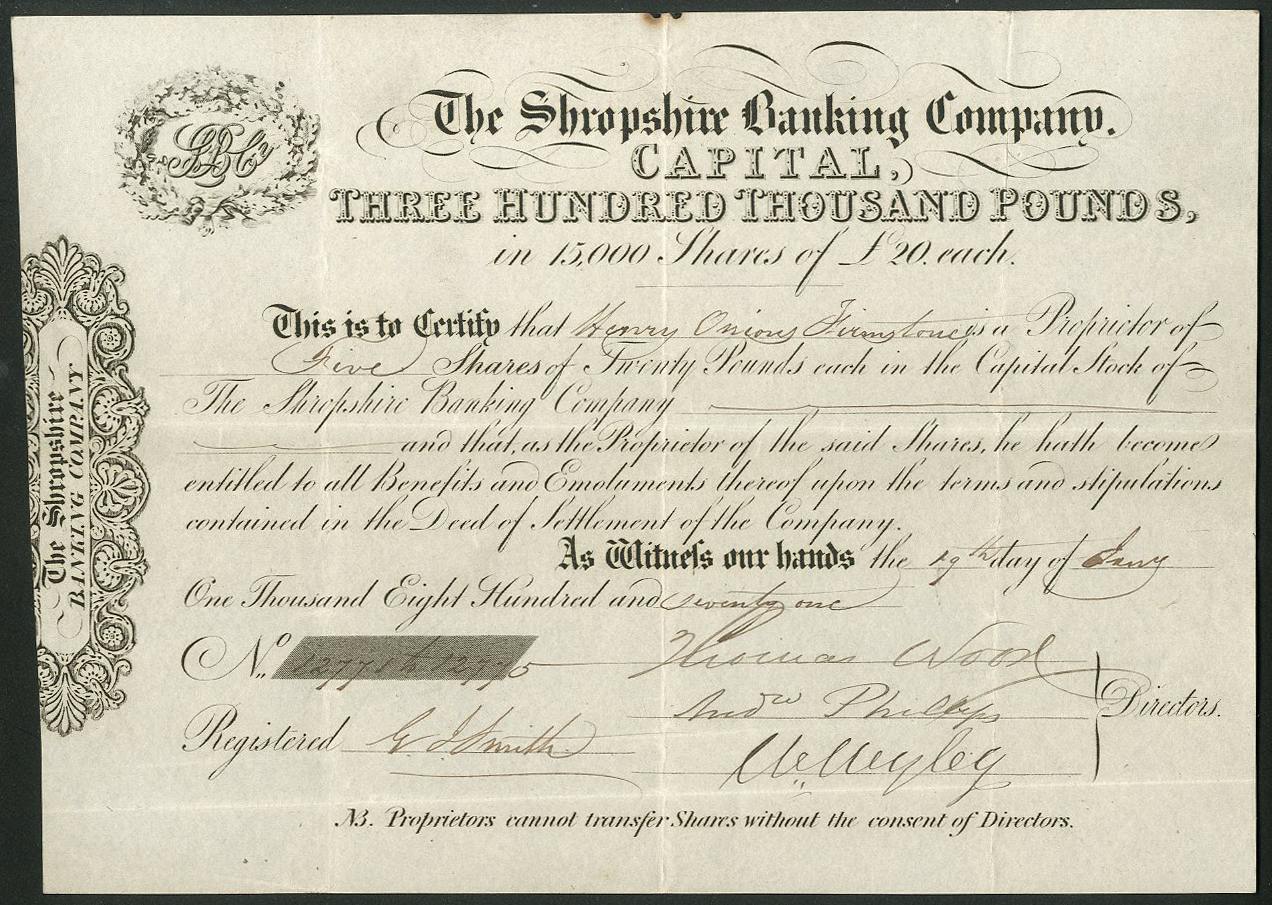 SBCy
The Shropshire Banking Company.
CAPITAL,
THREE HUNDRED THOUSAND POUNDS,
in 15,000 Shares of £20. each.
This is to Certify that Henry Onions Firmstone is a Proprietor of
Five Shares of Twenty Pounds each in the Capital Stock of
The Shropshire Banking Company
and that, as the Proprietor of the said Shares, he hath become
entitled to all Benefits and Emoluments thereof upon the terms and stipulations
contained in the Deed of Settlement of the Company.
As Witneſs our hands the 19th day of Jany
One Thousand Eight Hundred and seventy one
No. 12771 to 12775
Thomas Wood
Andw Phillips
Directors.
Registered G J Smith
NB. Proprietors cannot transfer Shares without the consent of Directors.
The Shropshire
BANKING COMPANY